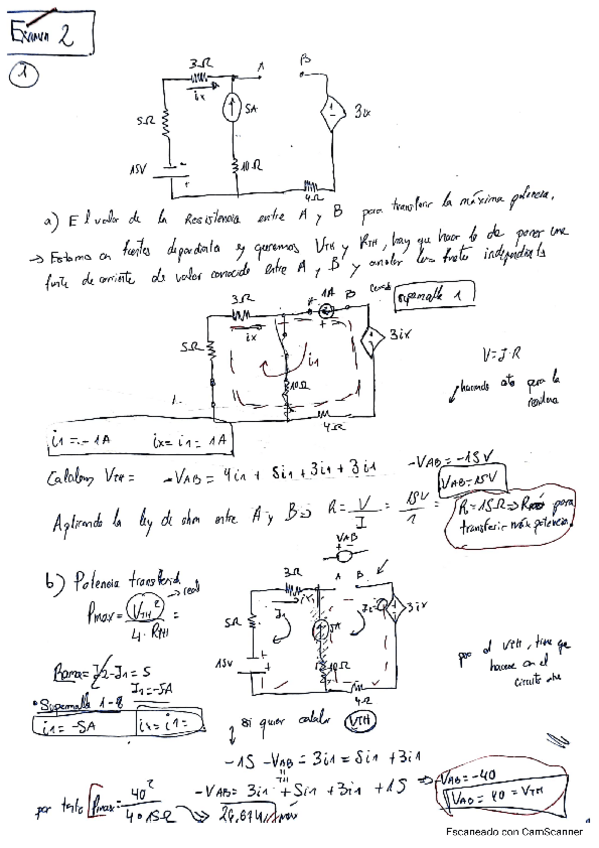 Examen 2
1
3Ω
A
B
ix
5Ω
5A
3ix
15V
10Ω
4Ω
a) El valor de la Resistencia entre A y B para transferir la máxima potencia.
→ Estamos en fuentes dependientes y queremos VTH y RTH, hay que hacer lo de poner una
fuente de corriente de valor conocido entre A y B y anular las fuentes independientes
3Ω
1A
B
supermalla 1
ix
3ix
5Ω
i1
10Ω
4Ω
V=J·R
haciendo esto para la
i1 = -1A ix = i1 = 1A
Calculamos VTH = -VAB = 4i1 + 5i1 + 3i1 + 3i1
-VAB = -15V
VAB = 15V
Aplicando la ley de ohm entre A y B => R = V/I = 15V/1 =
R = 15Ω => para
transferir máx potencia.
b) Potencia transferida
real
Pmax = VTH²/4·RTH =
VAB
3Ω
A
B
ix
J1
J2
3ix
5Ω
5A
15V
10Ω
4Ω
para el VTH, tiene que
hacerse en el
circuito
Rama = J2-J1 = 5
J1 = -5A
• Supermalla 1-2
i1 = -5A ix = i1 =
si quier calcular VTH
-15 - VAB = 3i1 = 5i1 + 3i1
-VAB = 3i1 + 5i1 + 3i1 + 15 => -VAB = -40
VAB = 40 = VTH
por tanto Pmax = 40²/4·15Ω => 26,67W máx
Escaneado con CamScanner